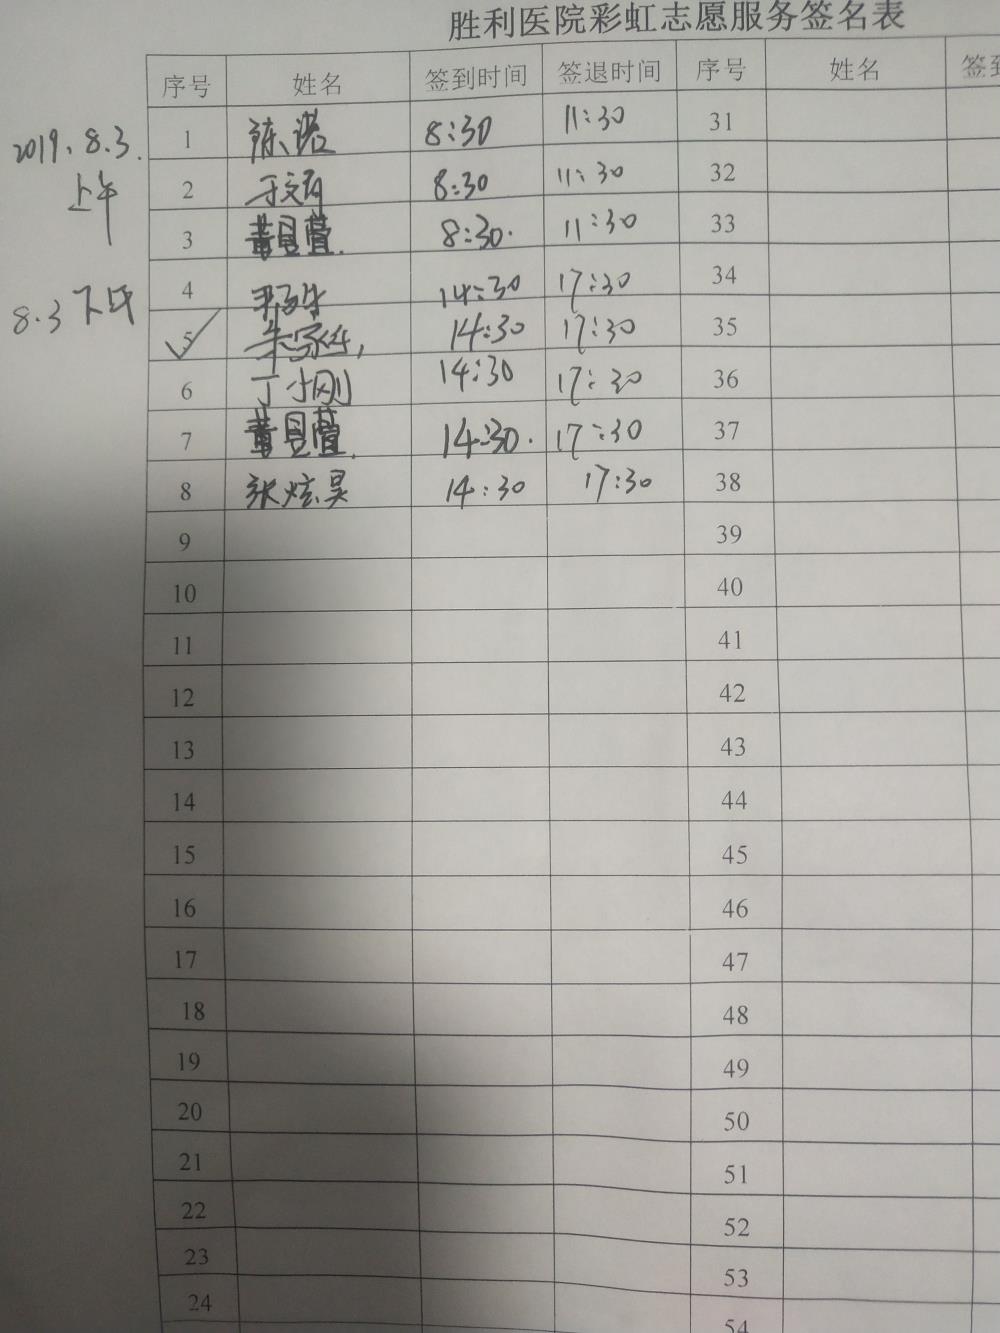 胜利医院彩虹志愿服务签名表
序号 姓名 签到时间 签退时间 序号 姓名 签到
2019.8.3. 上午
1 陈诺 8:30 11:30 31
2 8:30 11:30 32
3 8:30. 11:30 33
8.3 下午
4 14:30 17:30 34
5 14:30 17:30 35
6 丁小刚 14:30 17:30 36
7 14:30. 17:30 37
8 张炫昊 14:30 17:30 38
9 39
10 40
11 41
12 42
13 43
14 44
15 45
16 46
17 47
18 48
19 49
20 50
21 51
22 52
23 53
24 54